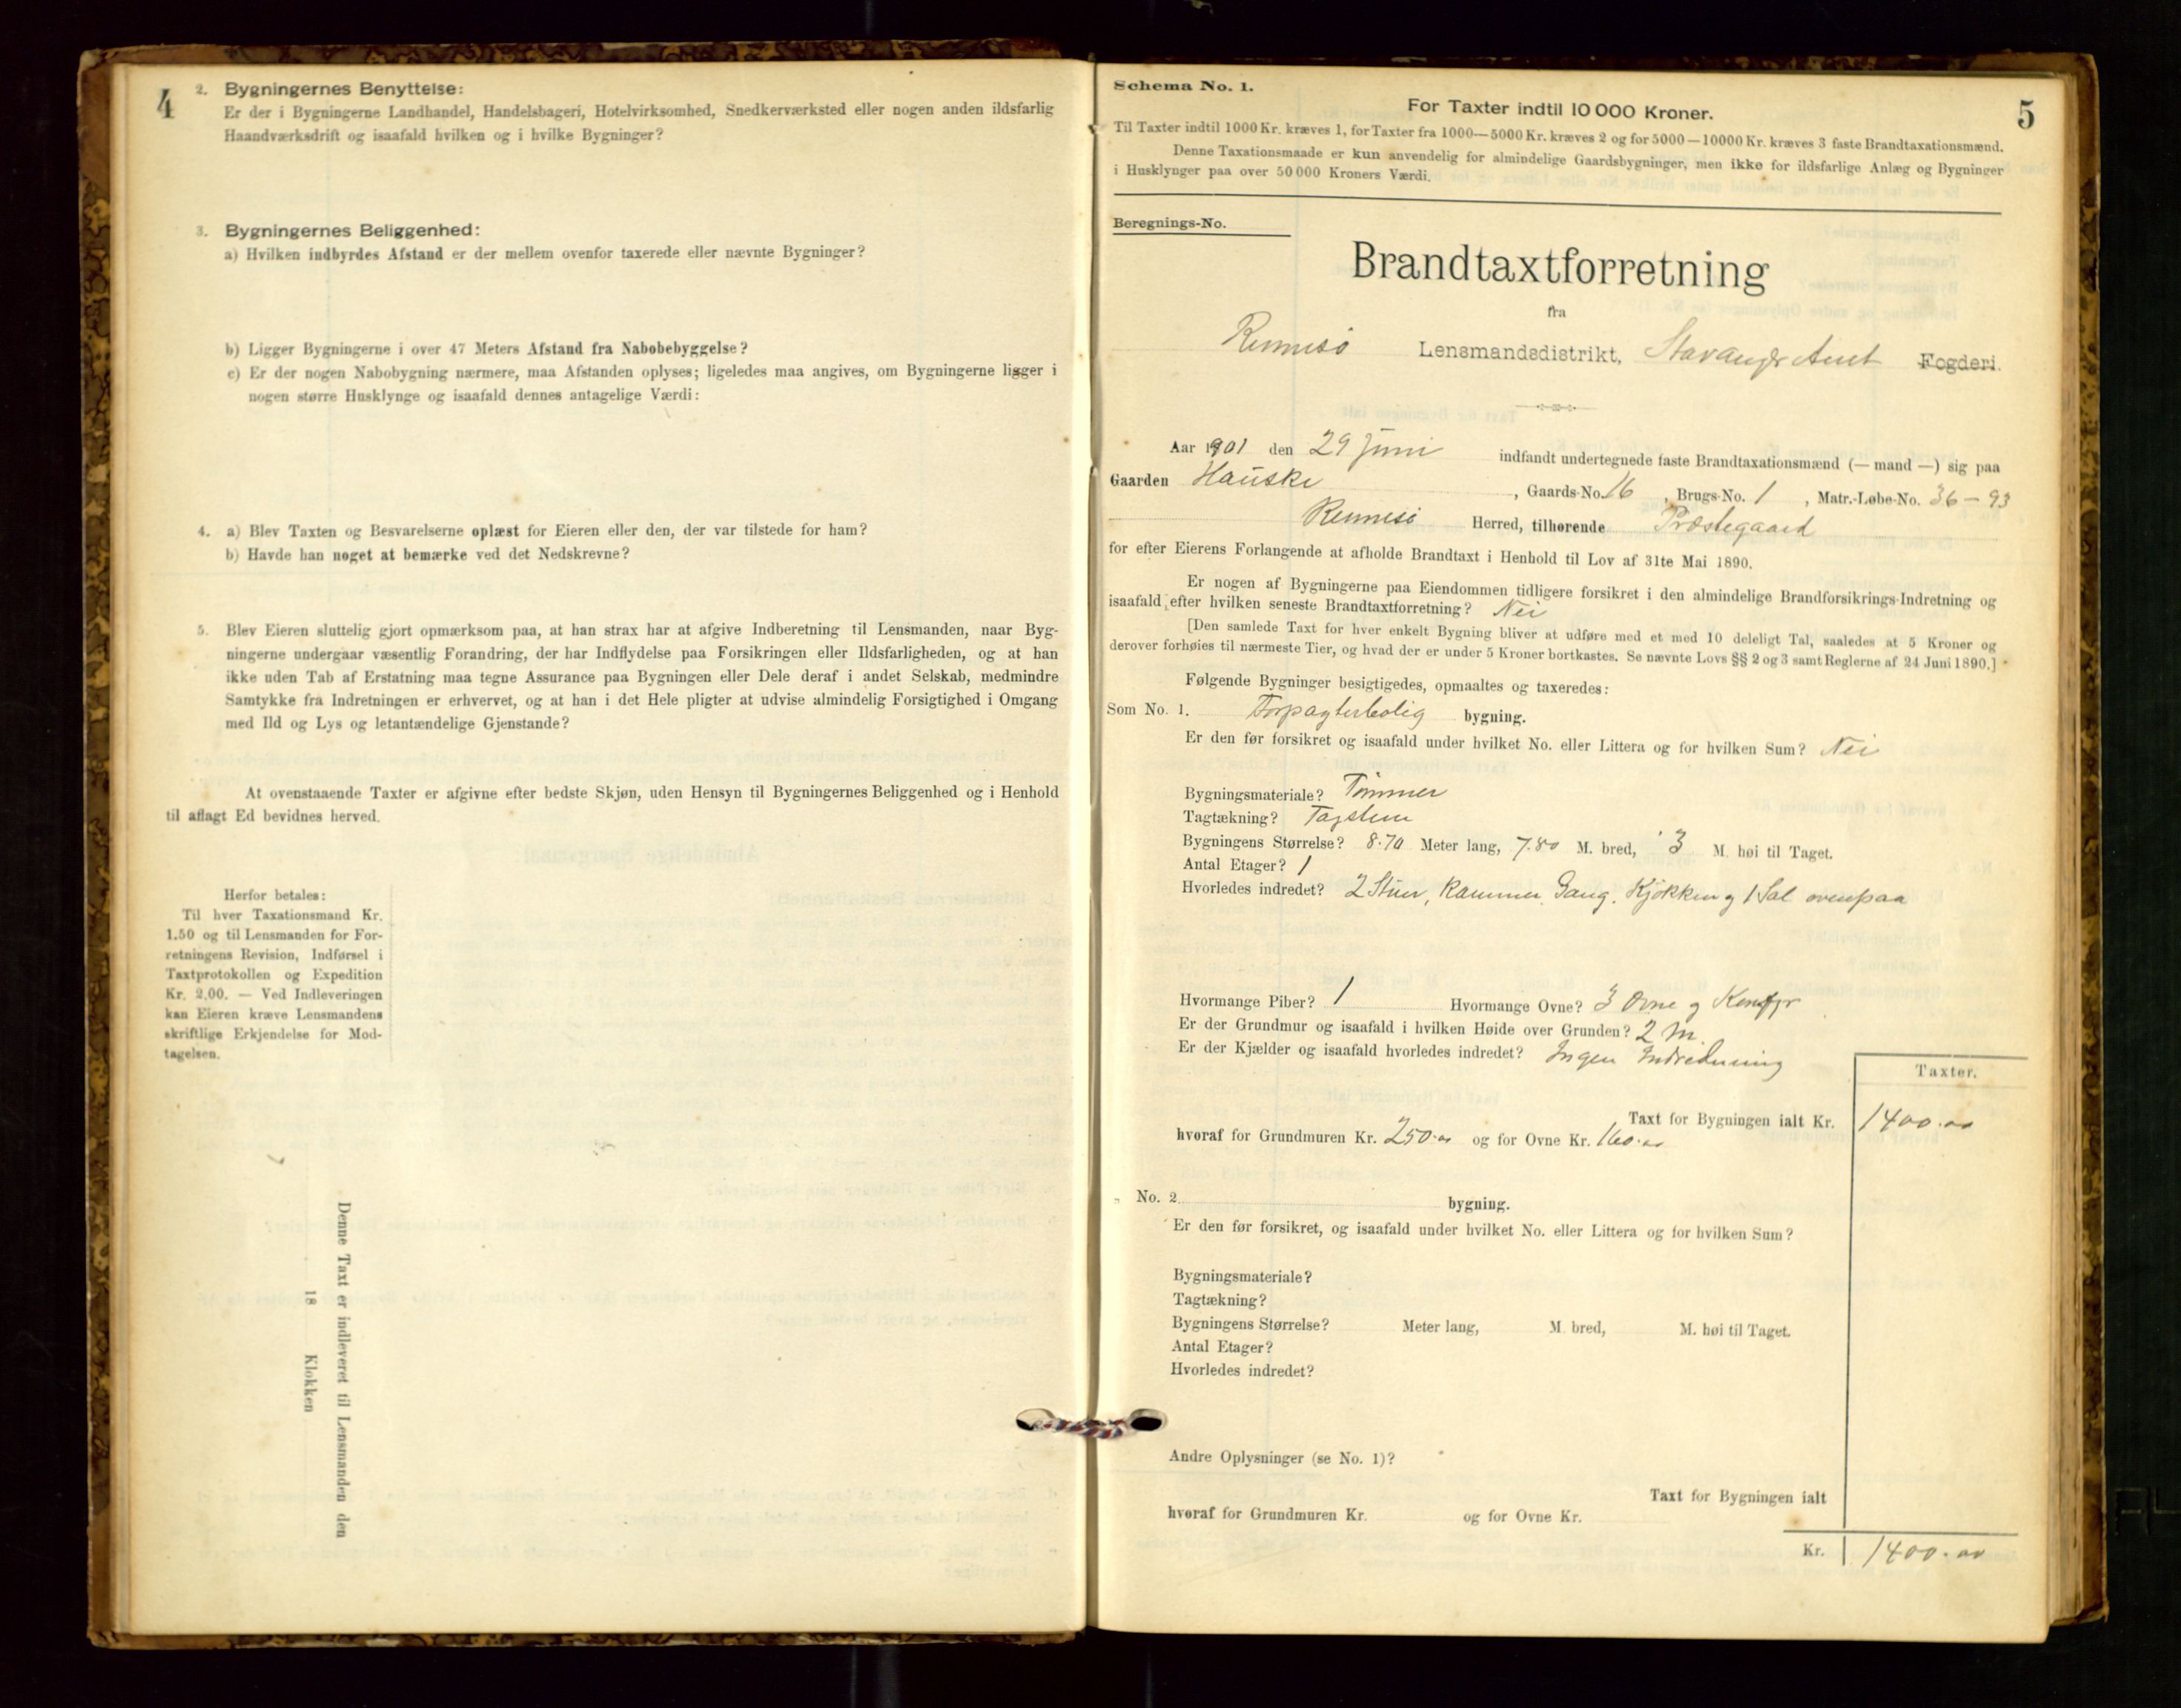 4
2. Bygningernes Benyttelse:
Er der i Bygningerne Landhandel, Handelsbageri, Hotelvirksomhed, Snedkerværksted eller nogen anden ildsfarlig
Haandværksdrift og isaafald hvilken og i hvilke Bygninger?
3. Bygningernes Beliggenhed:
a) Hvilken indbyrdes Afstand er der mellem ovenfor taxerede eller nævnte Bygninger?
b) Ligger Bygningerne i over 47 Meters Afstand fra Nabobebyggelse?
c) Er der nogen Nabobygning nærmere, maa Afstanden oplyses; ligeledes maa angives, om Bygningerne ligger i
nogen større Husklynge og isaafald dennes antagelige Værdi:
4. a) Blev Taxten og Besvarelserne oplæst for Eieren eller den, der var tilstede for ham?
b) Havde han noget at bemærke ved det Nedskrevne?
5. Blev Eieren sluttelig gjort opmærksom paa, at han strax har at afgive Indberetning til Lensmanden, naar Byg-
ningerne undergaar væsentlig Forandring, der har Indflydelse paa Forsikringen eller Ildsfarligheden, og at han
ikke uden Tab af Erstatning maa tegne Assurance paa Bygningen eller Dele deraf i andet Selskab, medmindre
Samtykke fra Indretningen er erhvervet, og at han i det Hele pligter at udvise almindelig Forsigtighed i Omgang
med Ild og Lys og letantændelige Gjenstande?
At ovenstaaende Taxter er afgivne efter bedste Skjøn, uden Hensyn til Bygningernes Beliggenhed og i Henhold
til aflagt Ed bevidnes herved.
Herfor betales:
Til hver Taxationsmand Kr.
1.50 og til Lensmanden for For-
retningens Revision, Indførsel i
Taxtprotokollen og Expedition
Kr. 2.00. — Ved Indleveringen
kan Eieren kræve Lensmandens
skriftlige Erkjendelse for Mod-
tagelsen.
Denne Taxt er indleveret til Lensmanden den
18 Klokken
Schema No. 1.
5
For Taxter indtil 10 000 Kroner.
Til Taxter indtil 1000 Kr. kræves 1, for Taxter fra 1000—5000 Kr. kræves 2 og for 5000—10000 Kr. kræves 3 faste Brandtaxationsmænd.
Denne Taxationsmaade er kun anvendelig for almindelige Gaardsbygninger, men ikke for ildsfarlige Anlæg og Bygninger
i Husklynger paa over 50 000 Kroners Værdi.
Beregnings-No.
Brandtaxtforretning
fra
Rennesö Lensmandsdistrikt, Stavanger Amt Fogderi.
Aar 1901 den 29 Juni indfandt undertegnede faste Brandtaxationsmænd (— mand —) sig paa
Gaarden Hauske, Gaards-No. 16, Brugs-No. 1, Matr.-Løbe-No. 36-93
Rennesö Herred, tilhørende Præstegaard
for efter Eierens Forlangende at afholde Brandtaxt i Henhold til Lov af 31te Mai 1890.
Er nogen af Bygningerne paa Eiendommen tidligere forsikret i den almindelige Brandforsikrings-Indretning og
isaafald efter hvilken seneste Brandtaxtforretning? Nei
[Den samlede Taxt for hver enkelt Bygning bliver at udføre med et med 10 deleligt Tal, saaledes at 5 Kroner og
derover forhøies til nærmeste Tier, og hvad der er under 5 Kroner bortkastes. Se nævnte Lovs §§ 2 og 3 samt Reglerne af 24 Juni 1890.]
Følgende Bygninger besigtigedes, opmaaltes og taxeredes:
Som No. 1. Forpagterbolig bygning.
Er den før forsikret og isaafald under hvilket No. eller Littera og for hvilken Sum? Nei
Bygningsmateriale? Tømmer
Tagtækning? Tagsten
Bygningens Størrelse? 8.70 Meter lang, 7.80 M. bred, 3 M. høi til Taget.
Antal Etager? 1
Hvorledes indredet? 2 Stuer, Kammer, Gang, Kjökken og 1 Sal ovenpaa
Hvormange Piber? 1 Hvormange Ovne? 3 Ovne og Komfyr
Er der Grundmur og isaafald i hvilken Høide over Grunden? 2 M.
Er der Kjælder og isaafald hvorledes indredet? Ingen Indredning
Taxter.
Taxt for Bygningen ialt Kr. 1400.00
hvoraf for Grundmuren Kr. 250.00 og for Ovne Kr. 160.00
" No. 2. bygning.
Er den før forsikret, og isaafald under hvilket No. eller Littera og for hvilken Sum?
Bygningsmateriale?
Tagtækning?
Bygningens Størrelse? Meter lang, M. bred, M. høi til Taget.
Antal Etager?
Hvorledes indredet?
Andre Oplysninger (se No. 1)?
Taxt for Bygningen ialt
hvoraf for Grundmuren Kr. og for Ovne Kr.
Kr. 1400.00